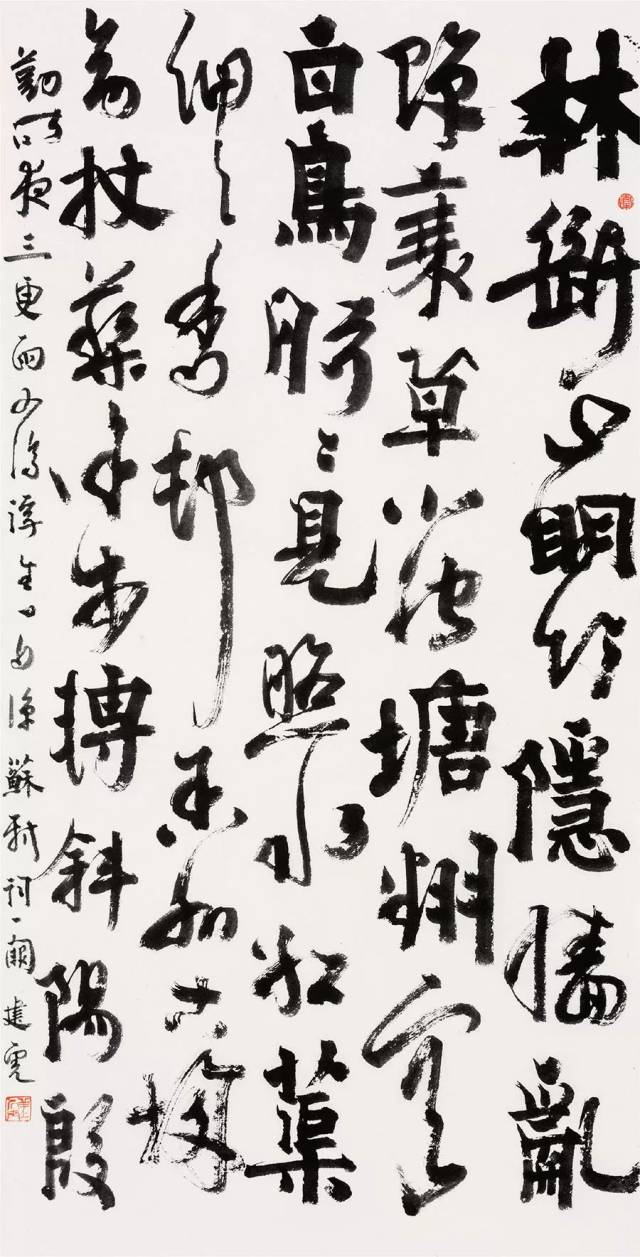 林斷山明竹隱牆亂
蟬衰草小池塘翻空
白鳥時〻見照水紅蕖
細〻香邨舍外古城
旁杖藜徐步轉斜陽殷
勤昨夜三更雨又得浮生一日涼 蘇軾詞一闋 建